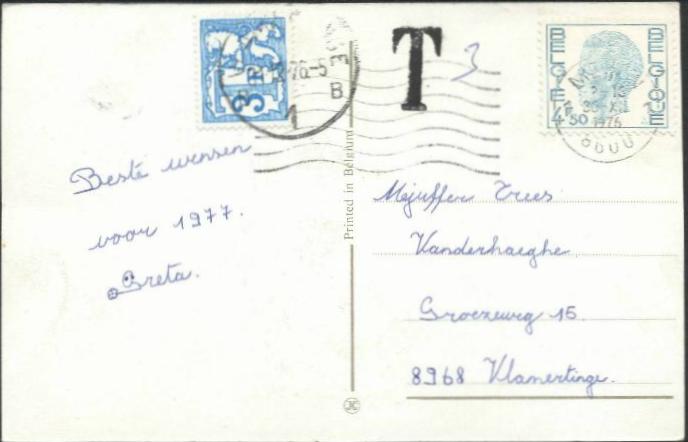 T
3
BELGIE
BELGIQUE
4 50
1976
3
B
1
Beste wensen
voor 1977.
Greta.
Printed in Belgium
Mejuffer Trees
Vanderhaeghe
Groezeweg 15
8968 Vlamertinge.